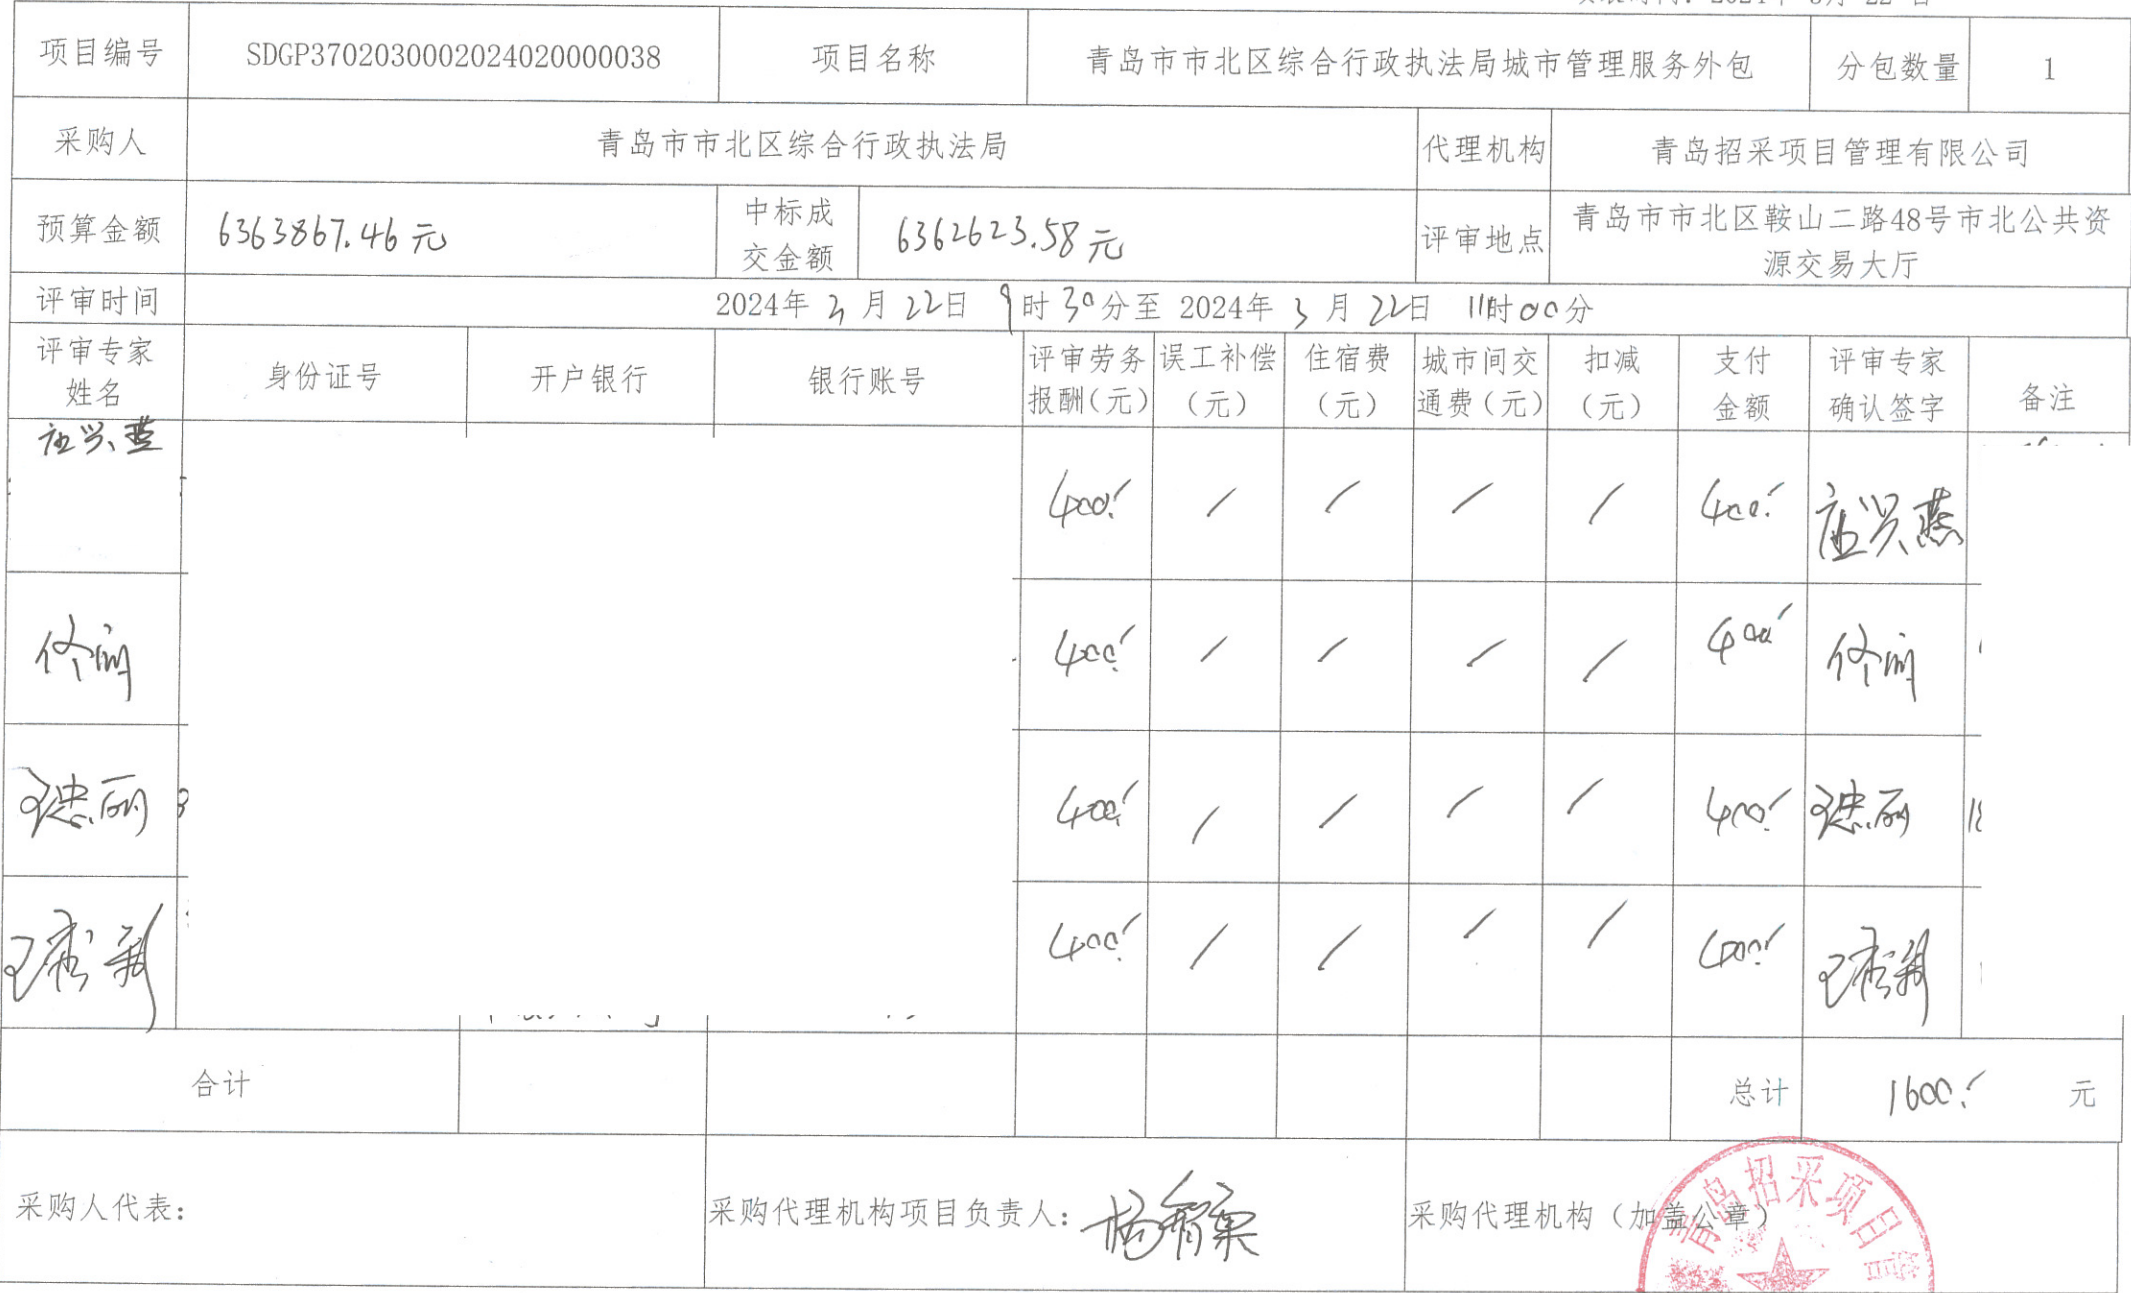 项目编号 SDGP370203000202402000038 项目名称 青岛市市北区综合行政执法局城市管理服务外包 分包数量 1
采购人 青岛市市北区综合行政执法局 代理机构 青岛招采项目管理有限公司
预算金额 6363867.46元 中标成交金额 6362623.58元 评审地点 青岛市市北区鞍山二路48号市北公共资
源交易大厅
评审时间 2024年 3月 22日 9时 30分至 2024年 3月 22日 11时00分
评审专家姓名 身份证号 开户银行 银行账号 评审劳务报酬(元) 误工补偿(元) 住宿费(元) 城市间交通费(元) 扣减(元) 支付金额 评审专家确认签字 备注
400 / / / / 400
400 / / / / 400
400 / / / / 400
400 / / / / 400
合计 总计 1600 元
采购人代表: 采购代理机构项目负责人: 采购代理机构(加盖公章)
青岛招采项目管